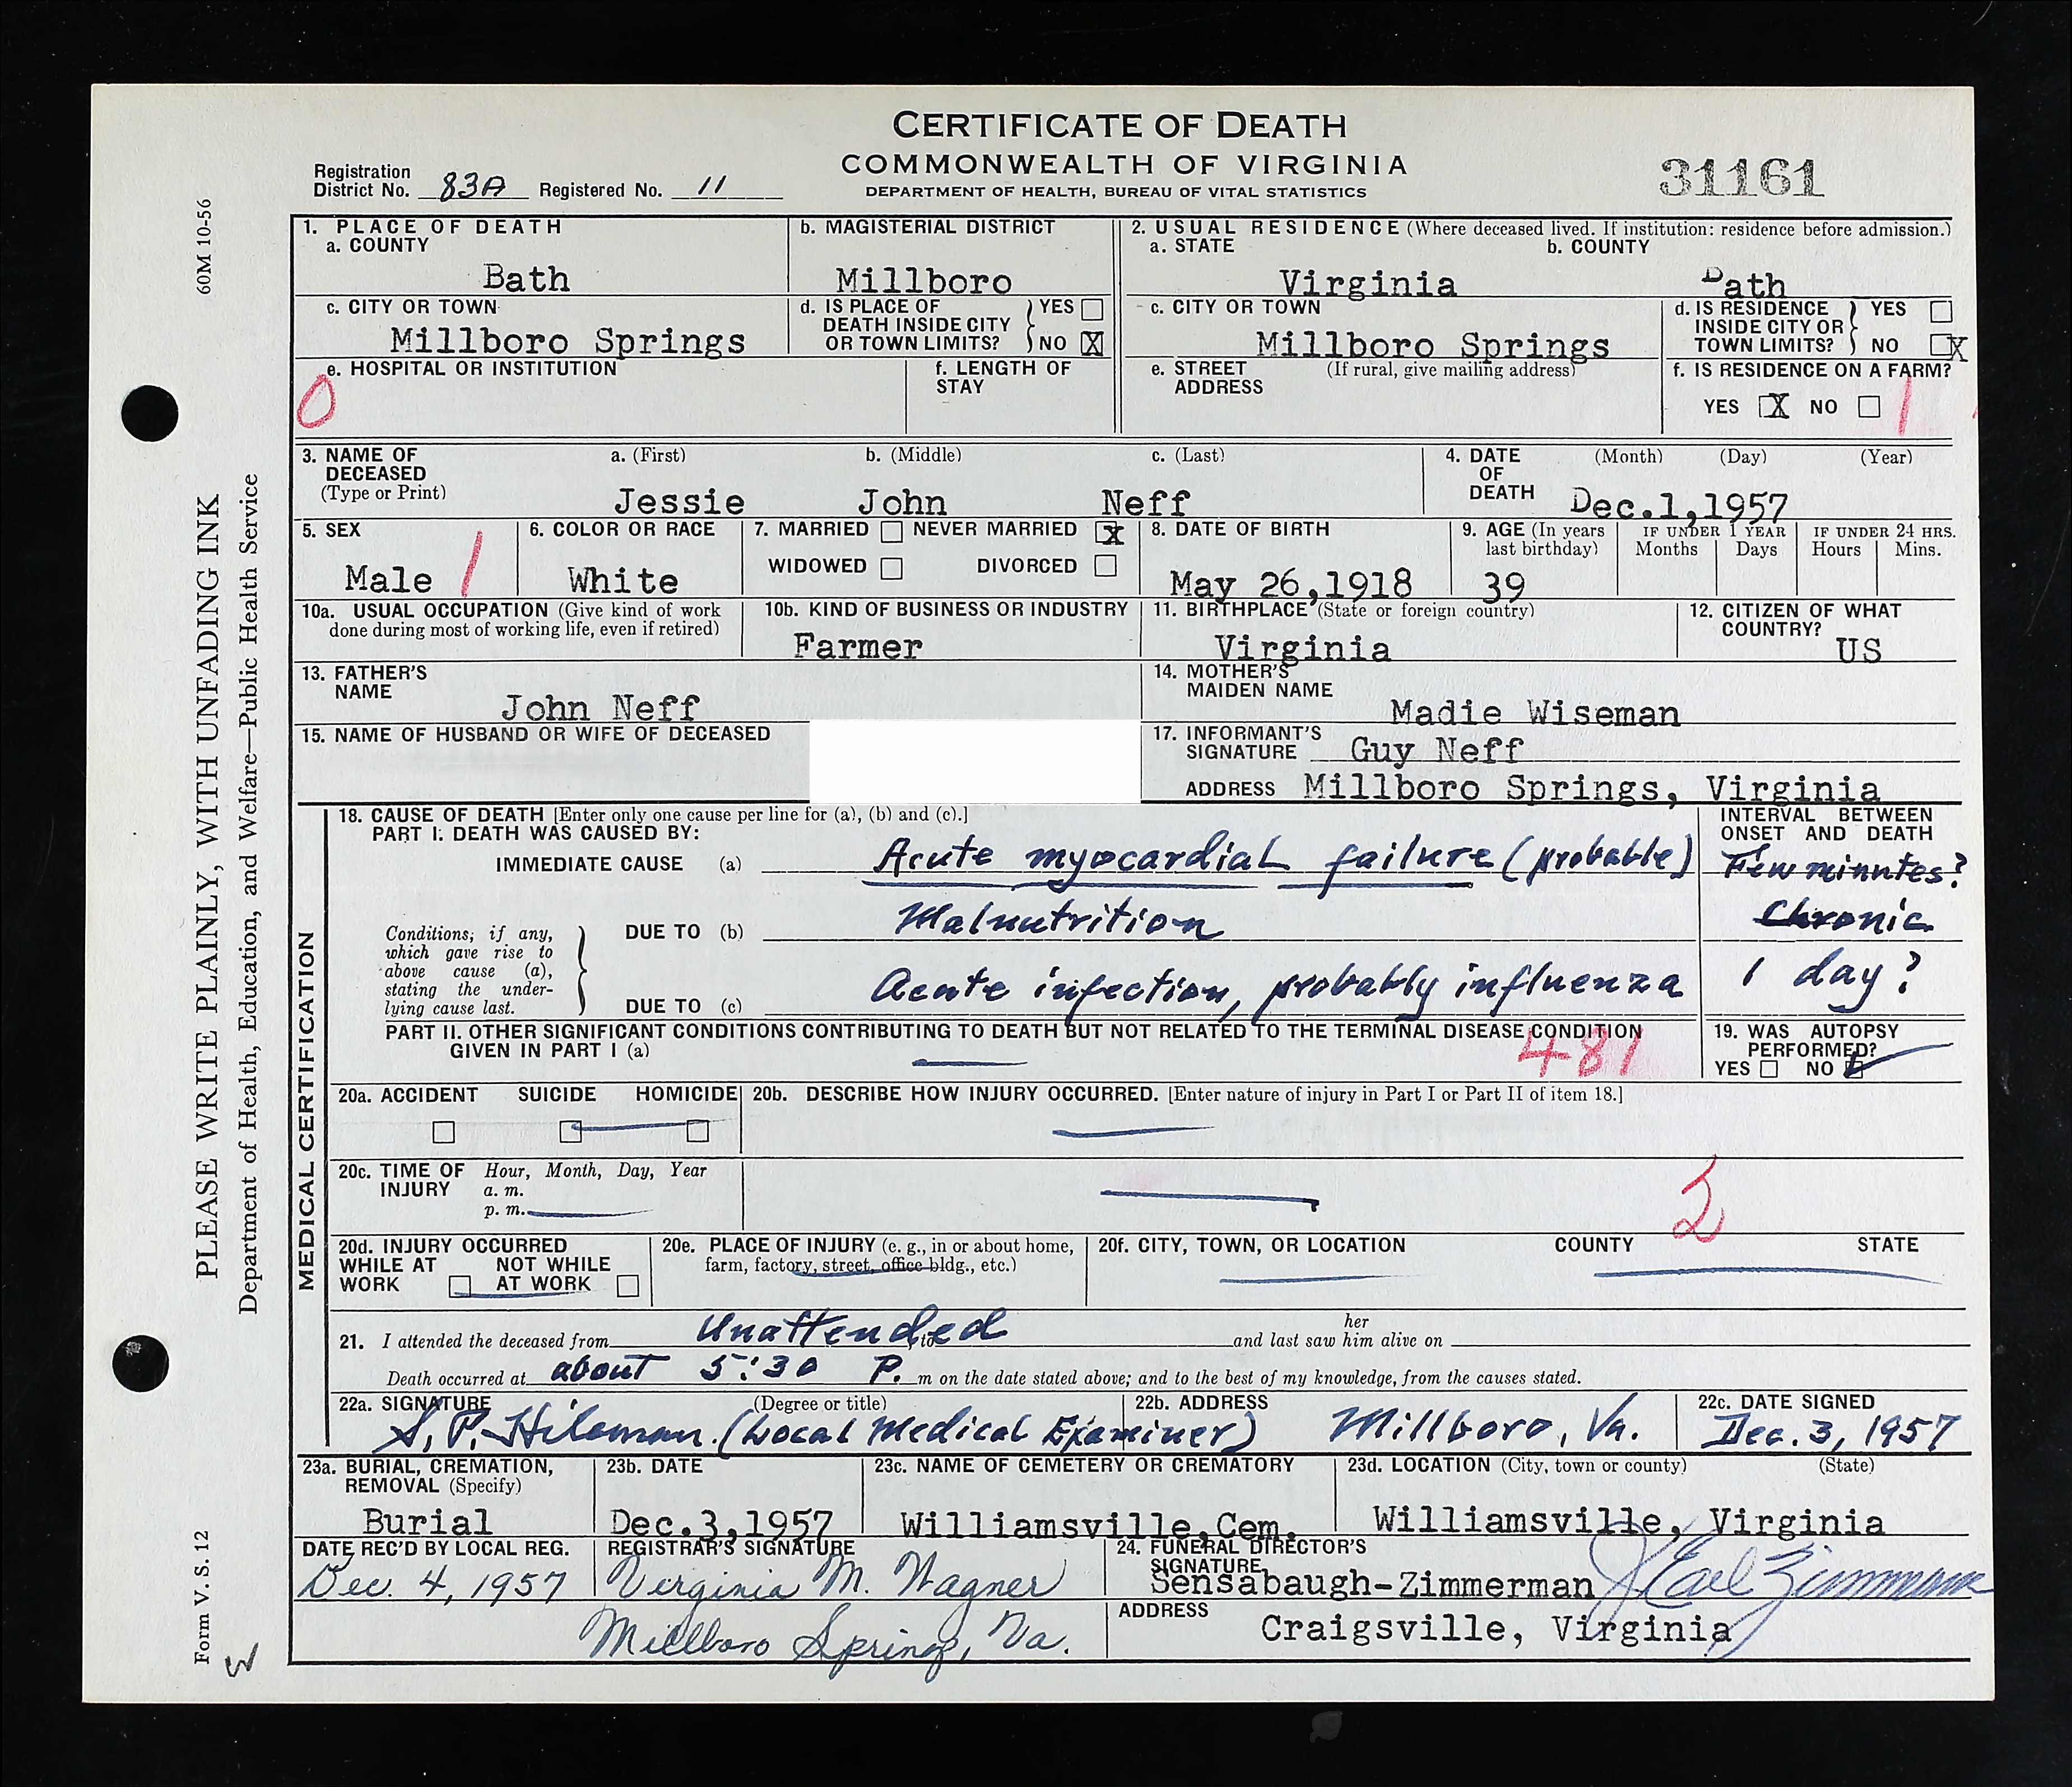 CERTIFICATE OF DEATH
COMMONWEALTH OF VIRGINIA
DEPARTMENT OF HEALTH, BUREAU OF VITAL STATISTICS
31161
Registration
District No. 83A Registered No. 11
60M 10-56
PLEASE WRITE PLAINLY, WITH UNFADING INK
Department of Health, Education, and Welfare—Public Health Service
Form V. S. 12
W
1. PLACE OF DEATH
a. COUNTY
Bath
b. MAGISTERIAL DISTRICT
Millboro
2. USUAL RESIDENCE (Where deceased lived. If institution: residence before admission.)
a. STATE b. COUNTY
Virginia Bath
c. CITY OR TOWN
Millboro Springs
d. IS PLACE OF DEATH INSIDE CITY OR TOWN LIMITS? YES NO X
c. CITY OR TOWN
Millboro Springs
d. IS RESIDENCE INSIDE CITY OR TOWN LIMITS? YES NO X
e. HOSPITAL OR INSTITUTION
0
f. LENGTH OF STAY
e. STREET ADDRESS (If rural, give mailing address)
f. IS RESIDENCE ON A FARM?
YES X NO 1
3. NAME OF DECEASED (Type or Print)
a. (First) b. (Middle) c. (Last)
Jessie John Neff
4. DATE OF DEATH (Month) (Day) (Year)
Dec.1,1957
5. SEX
Male 1
6. COLOR OR RACE
White
7. MARRIED NEVER MARRIED X
WIDOWED DIVORCED
8. DATE OF BIRTH
May 26,1918
9. AGE (In years last birthday)
39
IF UNDER 1 YEAR
Months Days
IF UNDER 24 HRS.
Hours Mins.
10a. USUAL OCCUPATION (Give kind of work done during most of working life, even if retired)
10b. KIND OF BUSINESS OR INDUSTRY
Farmer
11. BIRTHPLACE (State or foreign country)
Virginia
12. CITIZEN OF WHAT COUNTRY?
US
13. FATHER'S NAME
John Neff
14. MOTHER'S MAIDEN NAME
Madie Wiseman
15. NAME OF HUSBAND OR WIFE OF DECEASED
17. INFORMANT'S SIGNATURE Guy Neff
ADDRESS Millboro Springs, Virginia
MEDICAL CERTIFICATION
18. CAUSE OF DEATH [Enter only one cause per line for (a), (b) and (c).]
PART I. DEATH WAS CAUSED BY:
INTERVAL BETWEEN ONSET AND DEATH
IMMEDIATE CAUSE (a) Acute myocardial failure (probable) Few minutes?
Conditions, if any, which gave rise to above cause (a), stating the underlying cause last.
DUE TO (b) Malnutrition Chronic
DUE TO (c) Acute infection, probably influenza 1 day?
PART II. OTHER SIGNIFICANT CONDITIONS CONTRIBUTING TO DEATH BUT NOT RELATED TO THE TERMINAL DISEASE CONDITION
GIVEN IN PART I (a)
481
19. WAS AUTOPSY PERFORMED?
YES NO
20a. ACCIDENT SUICIDE HOMICIDE
20b. DESCRIBE HOW INJURY OCCURRED. [Enter nature of injury in Part I or Part II of item 18.]
20c. TIME OF INJURY Hour, Month, Day, Year
a. m.
p. m.
2
20d. INJURY OCCURRED
WHILE AT WORK NOT WHILE AT WORK
20e. PLACE OF INJURY (e. g., in or about home, farm, factory, street, office bldg., etc.)
20f. CITY, TOWN, OR LOCATION COUNTY STATE
21. I attended the deceased from Unattended, to and last saw her him alive on
Death occurred at about 5:30 P. m on the date stated above; and to the best of my knowledge, from the causes stated.
22a. SIGNATURE (Degree or title)
S. P. Hileman. (Local Medical Examiner)
22b. ADDRESS
Millboro, Va.
22c. DATE SIGNED
Dec. 3, 1957
23a. BURIAL, CREMATION, REMOVAL (Specify)
Burial
23b. DATE
Dec.3,1957
23c. NAME OF CEMETERY OR CREMATORY
Williamsville,Cem.
23d. LOCATION (City, town or county) (State)
Williamsville, Virginia
DATE REC'D BY LOCAL REG.
Dec. 4, 1957
REGISTRAR'S SIGNATURE
Virginia M. Wagner
Millboro Springs, Va.
24. FUNERAL DIRECTOR'S SIGNATURE
Sensabaugh-Zimmerman J Earl Zimmerman
ADDRESS
Craigsville, Virginia